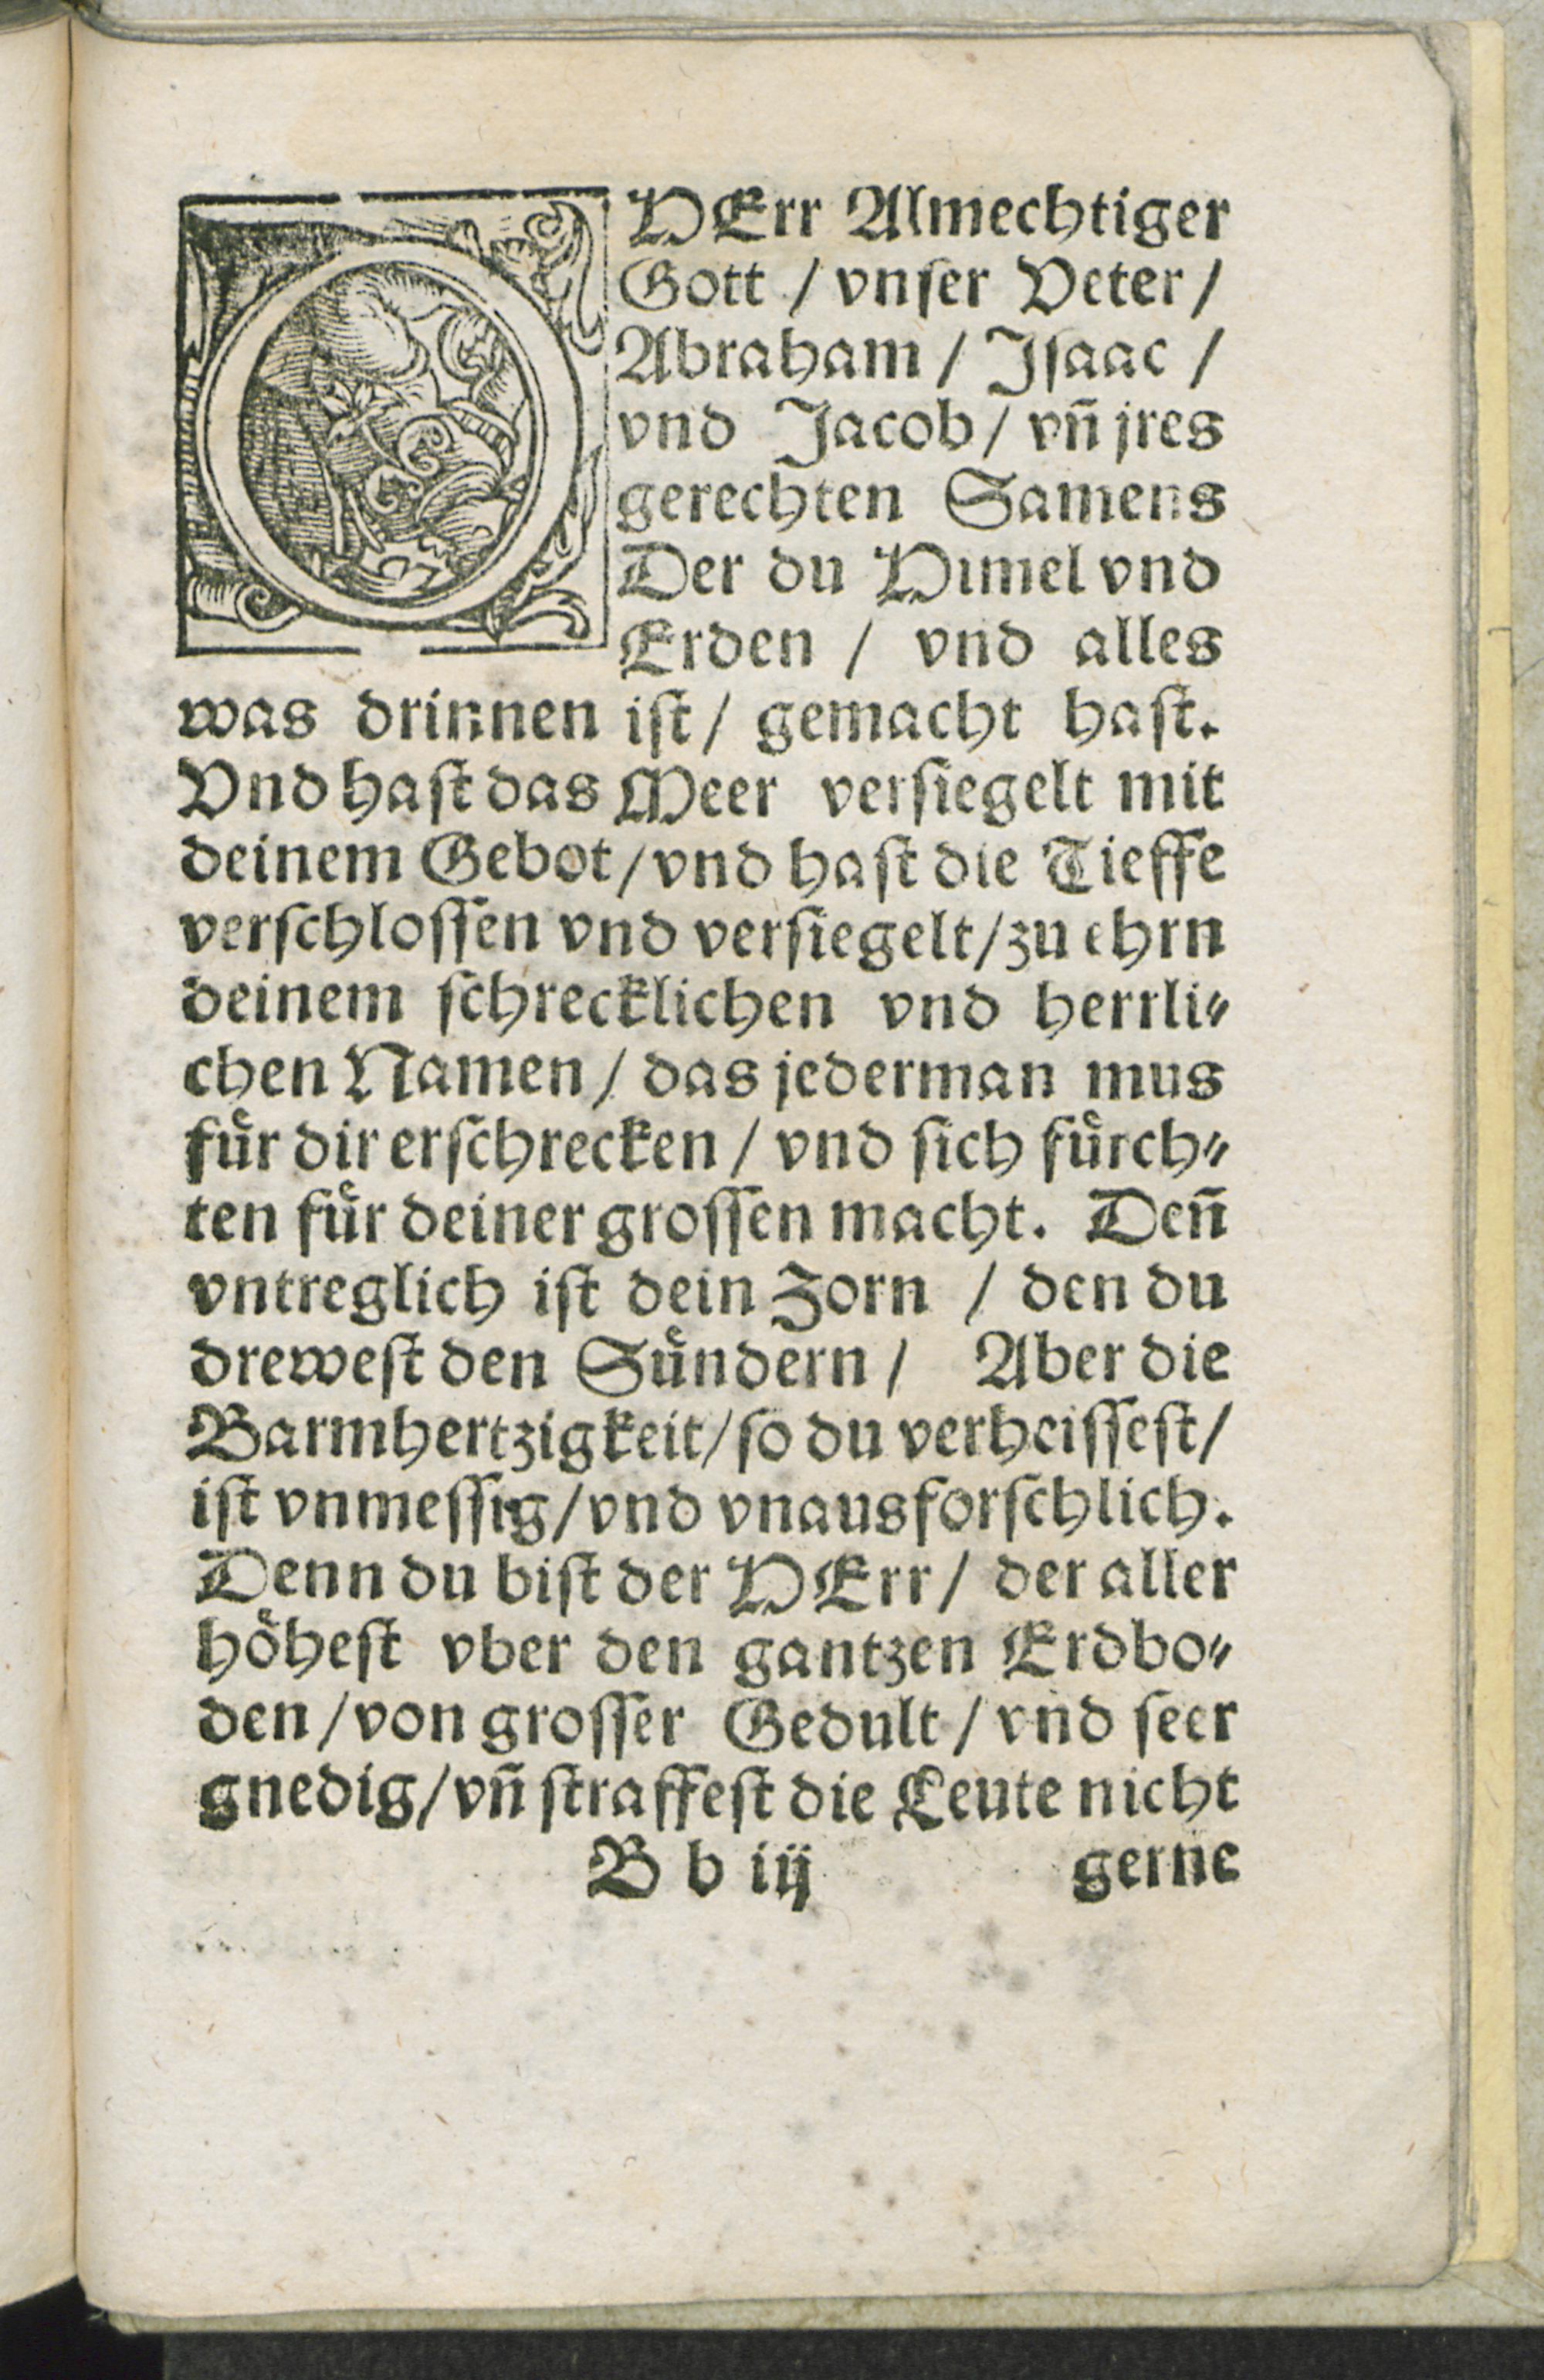 O HErr Almechtiger
Gott / vnſer Veter /
Abraham / Iſaac /
vnd Jacob / vn̄ jres
gerechten Samens
Der du Himel vnd
Erden / vnd alles
was drinnen iſt / gemacht haſt.
Vnd haſt das Meer verſiegelt mit
deinem Gebot / vnd haſt die Tieffe
verſchloſſen vnd verſiegelt / zu ehrn
deinem ſchrecklichen vnd herrli⸗
chen Namen / das jederman mus
fuͤr dir erſchrecken / vnd ſich fuͤrch⸗
ten fuͤr deiner groſſen macht. Den̄
vntreglich iſt dein Zorn / den du
dreweſt den Suͤndern / Aber die
Barmhertzigkeit / ſo du verheiſſeſt /
iſt vnmeſſig / vnd vnausforſchlich.
Denn du biſt der HErr / der aller
hoͤheſt vber den gantzen Erdbo⸗
den / von groſſer Gedult / vnd ſeer
gnedig / vn̄ ſtraffeſt die Leute nicht
B b iij gerne